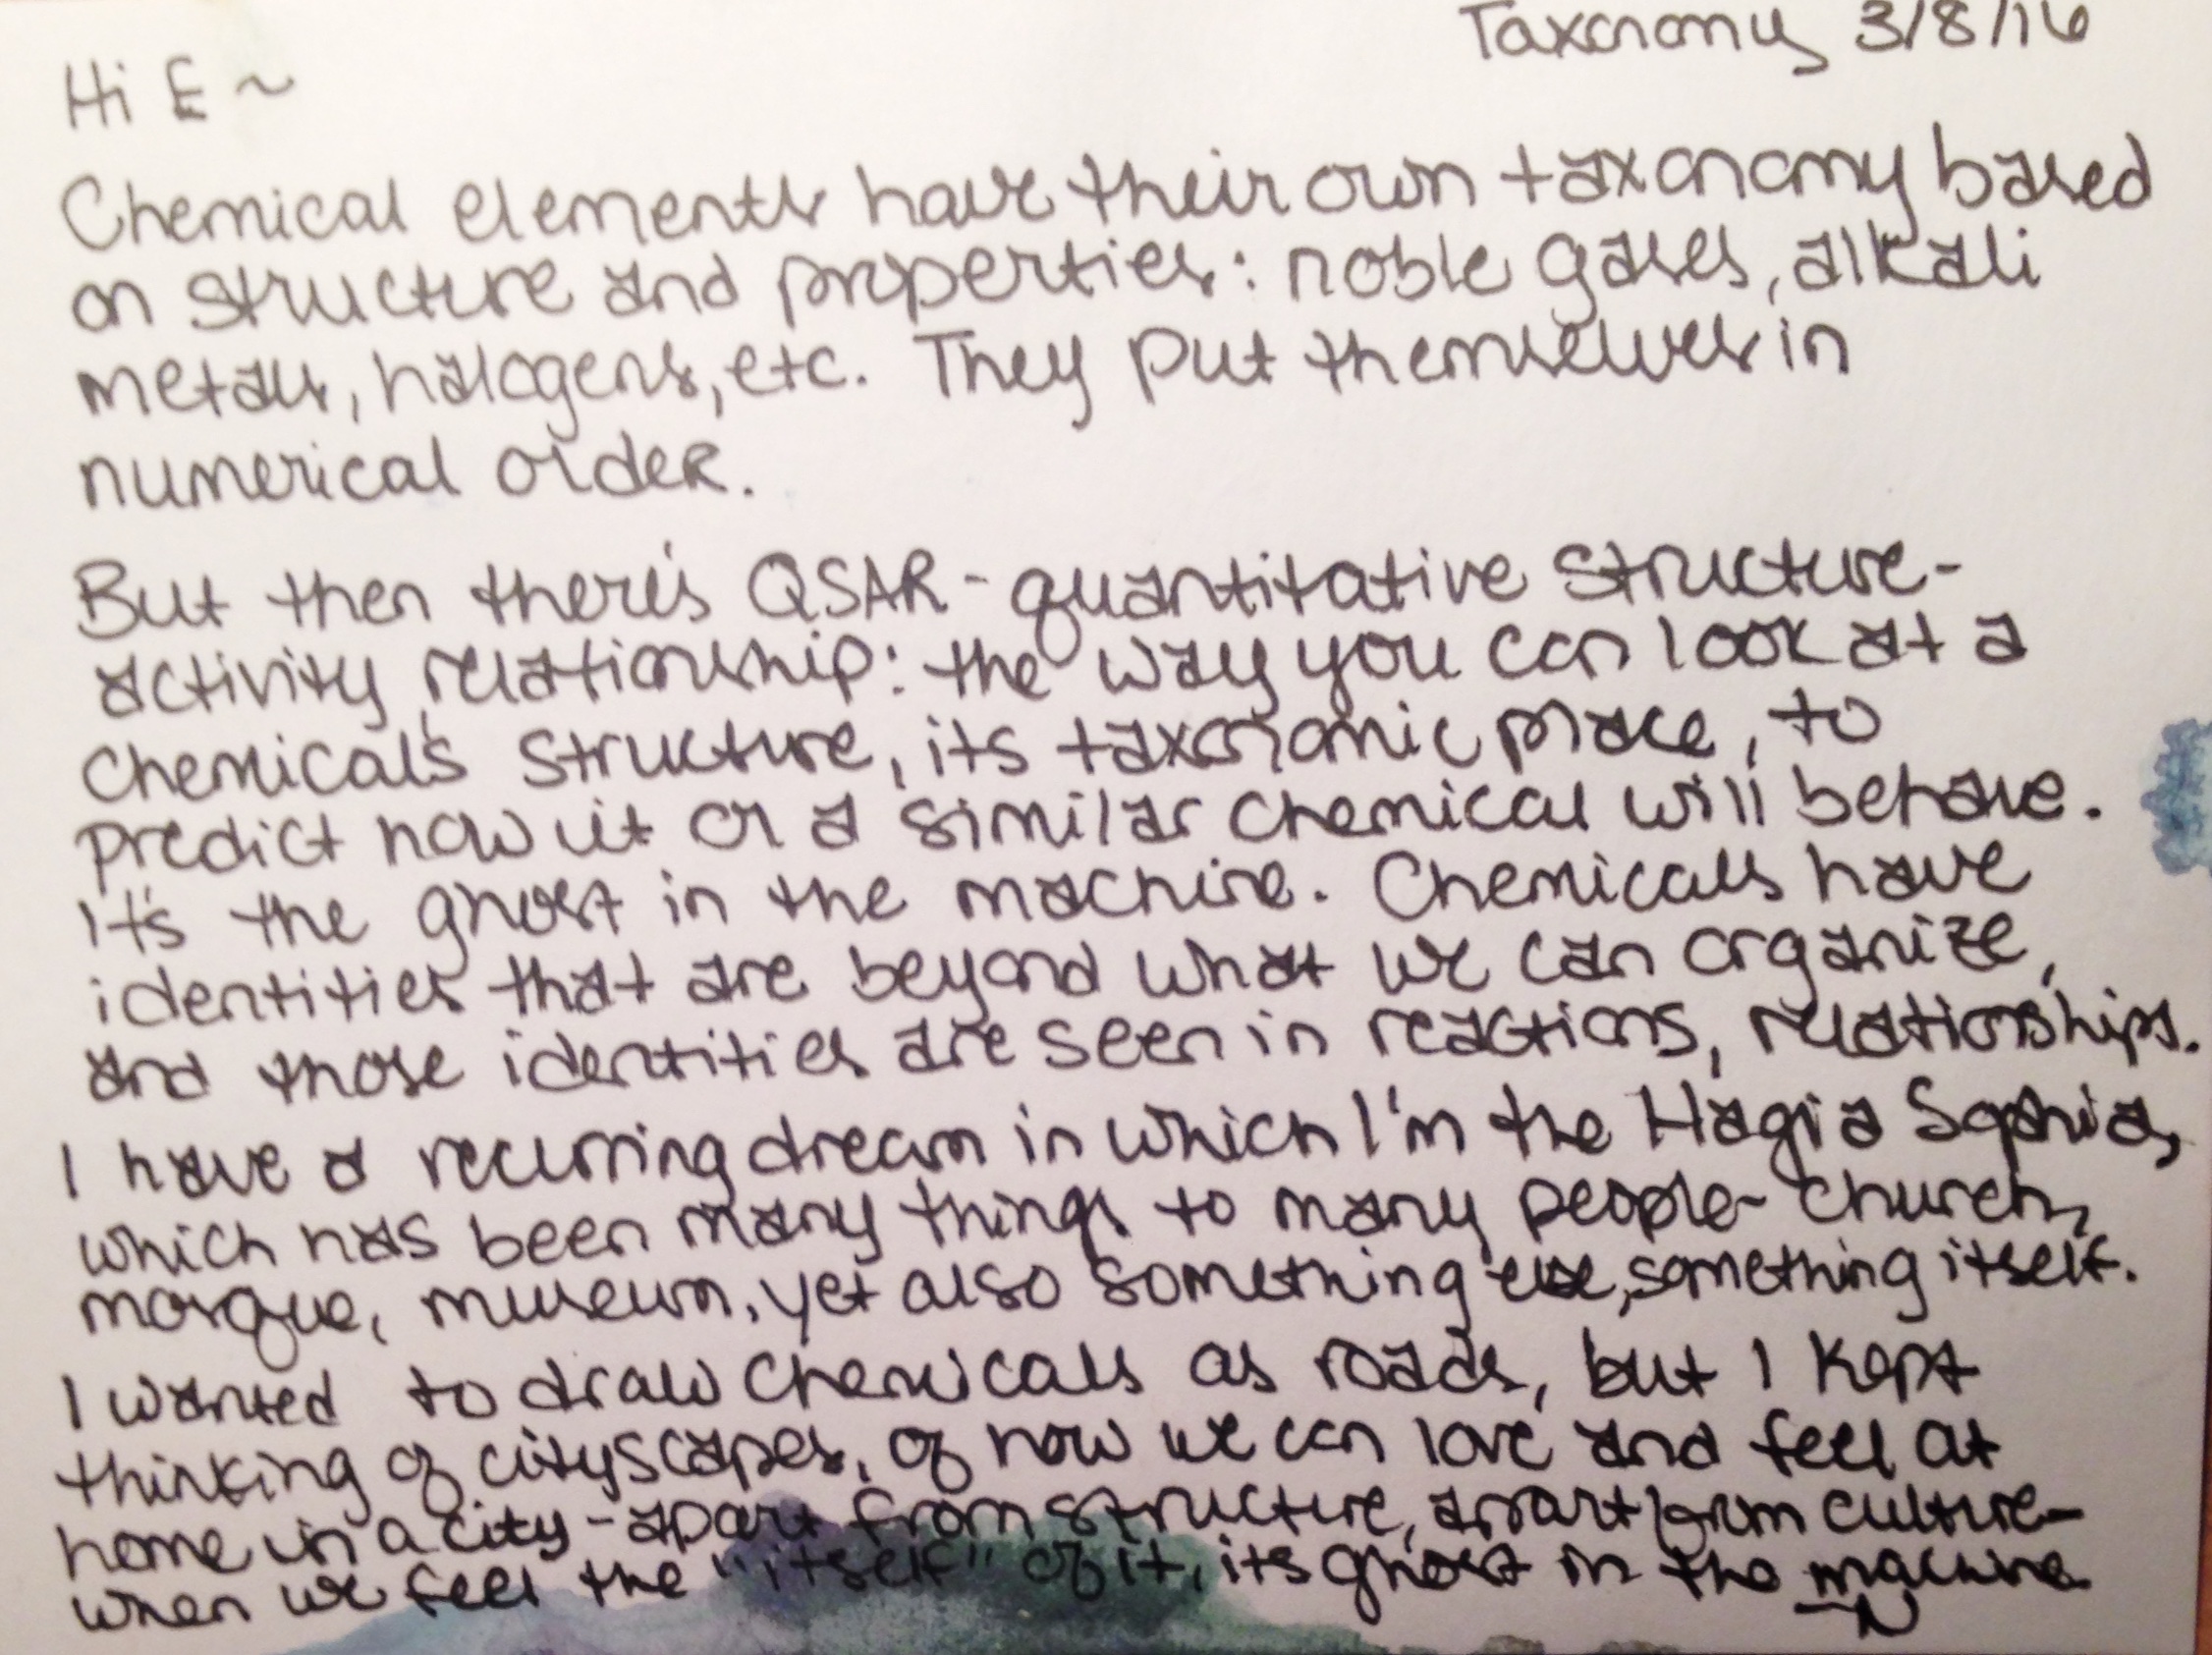 Taxonomy 3/8/16
Hi E ~
Chemical elements have their own taxonomy based
on structure and properties: noble gases, alkali
metals, halogens, etc. They put themselves in
numerical order.
But then there's QSAR - quantitative structure-
activity relationship: the way you can look at a
chemical's structure, its taxonomic place, to
predict how it or a similar chemical will behave.
It's the ghost in the machine. Chemicals have
identities that are beyond what we can organize,
and those identities are seen in reactions, relationships.
I have a recurring dream in which I'm the Hagia Sophia,
which has been many things to many people - church,
mosque, museum, yet also something else, something itself.
I wanted to draw chemicals as roads, but I kept
thinking of cityscapes, of how we can love and feel at
home in a city - apart from structure, apart from culture -
when we feel the "itself" of it, its ghost in the machine
~N